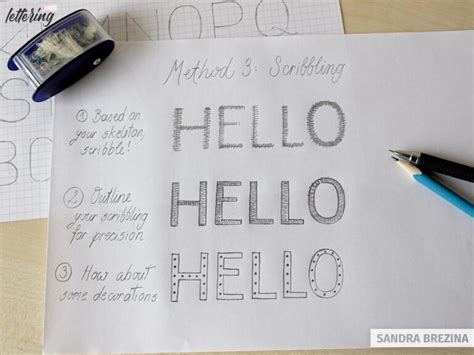 lettering
N O P Q
Method 3: Scribbling
① Based on
your skeleton,
scribble!
HELLO
② Outline
your scribbling
for precision
HELLO
③ How about
some decorations
HELLO
SANDRA BREZINA